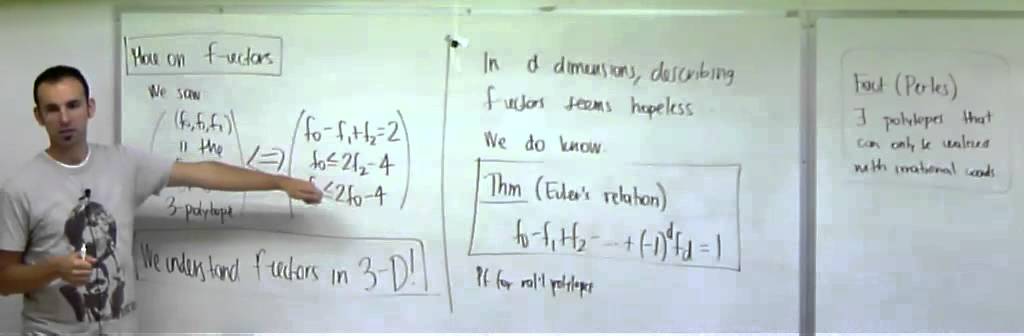 More on f-vectors
We saw
(f₀,f₁,f₂)
is the
3-polytope
<=>
f₀-f₁+f₂=2
f₀≤2f₂-4
≤2f₀-4
We understand f-vectors in 3-D!
In d dimensions, describing
f-vectors seems hopeless
We do know
Thm (Euler's relation)
f₀-f₁+f₂-...+(-1)ᵈf_d=1
Pf for rat'l polytopes
Fact (Perles)
∃ polytopes that
can only be realized
with irrational coords